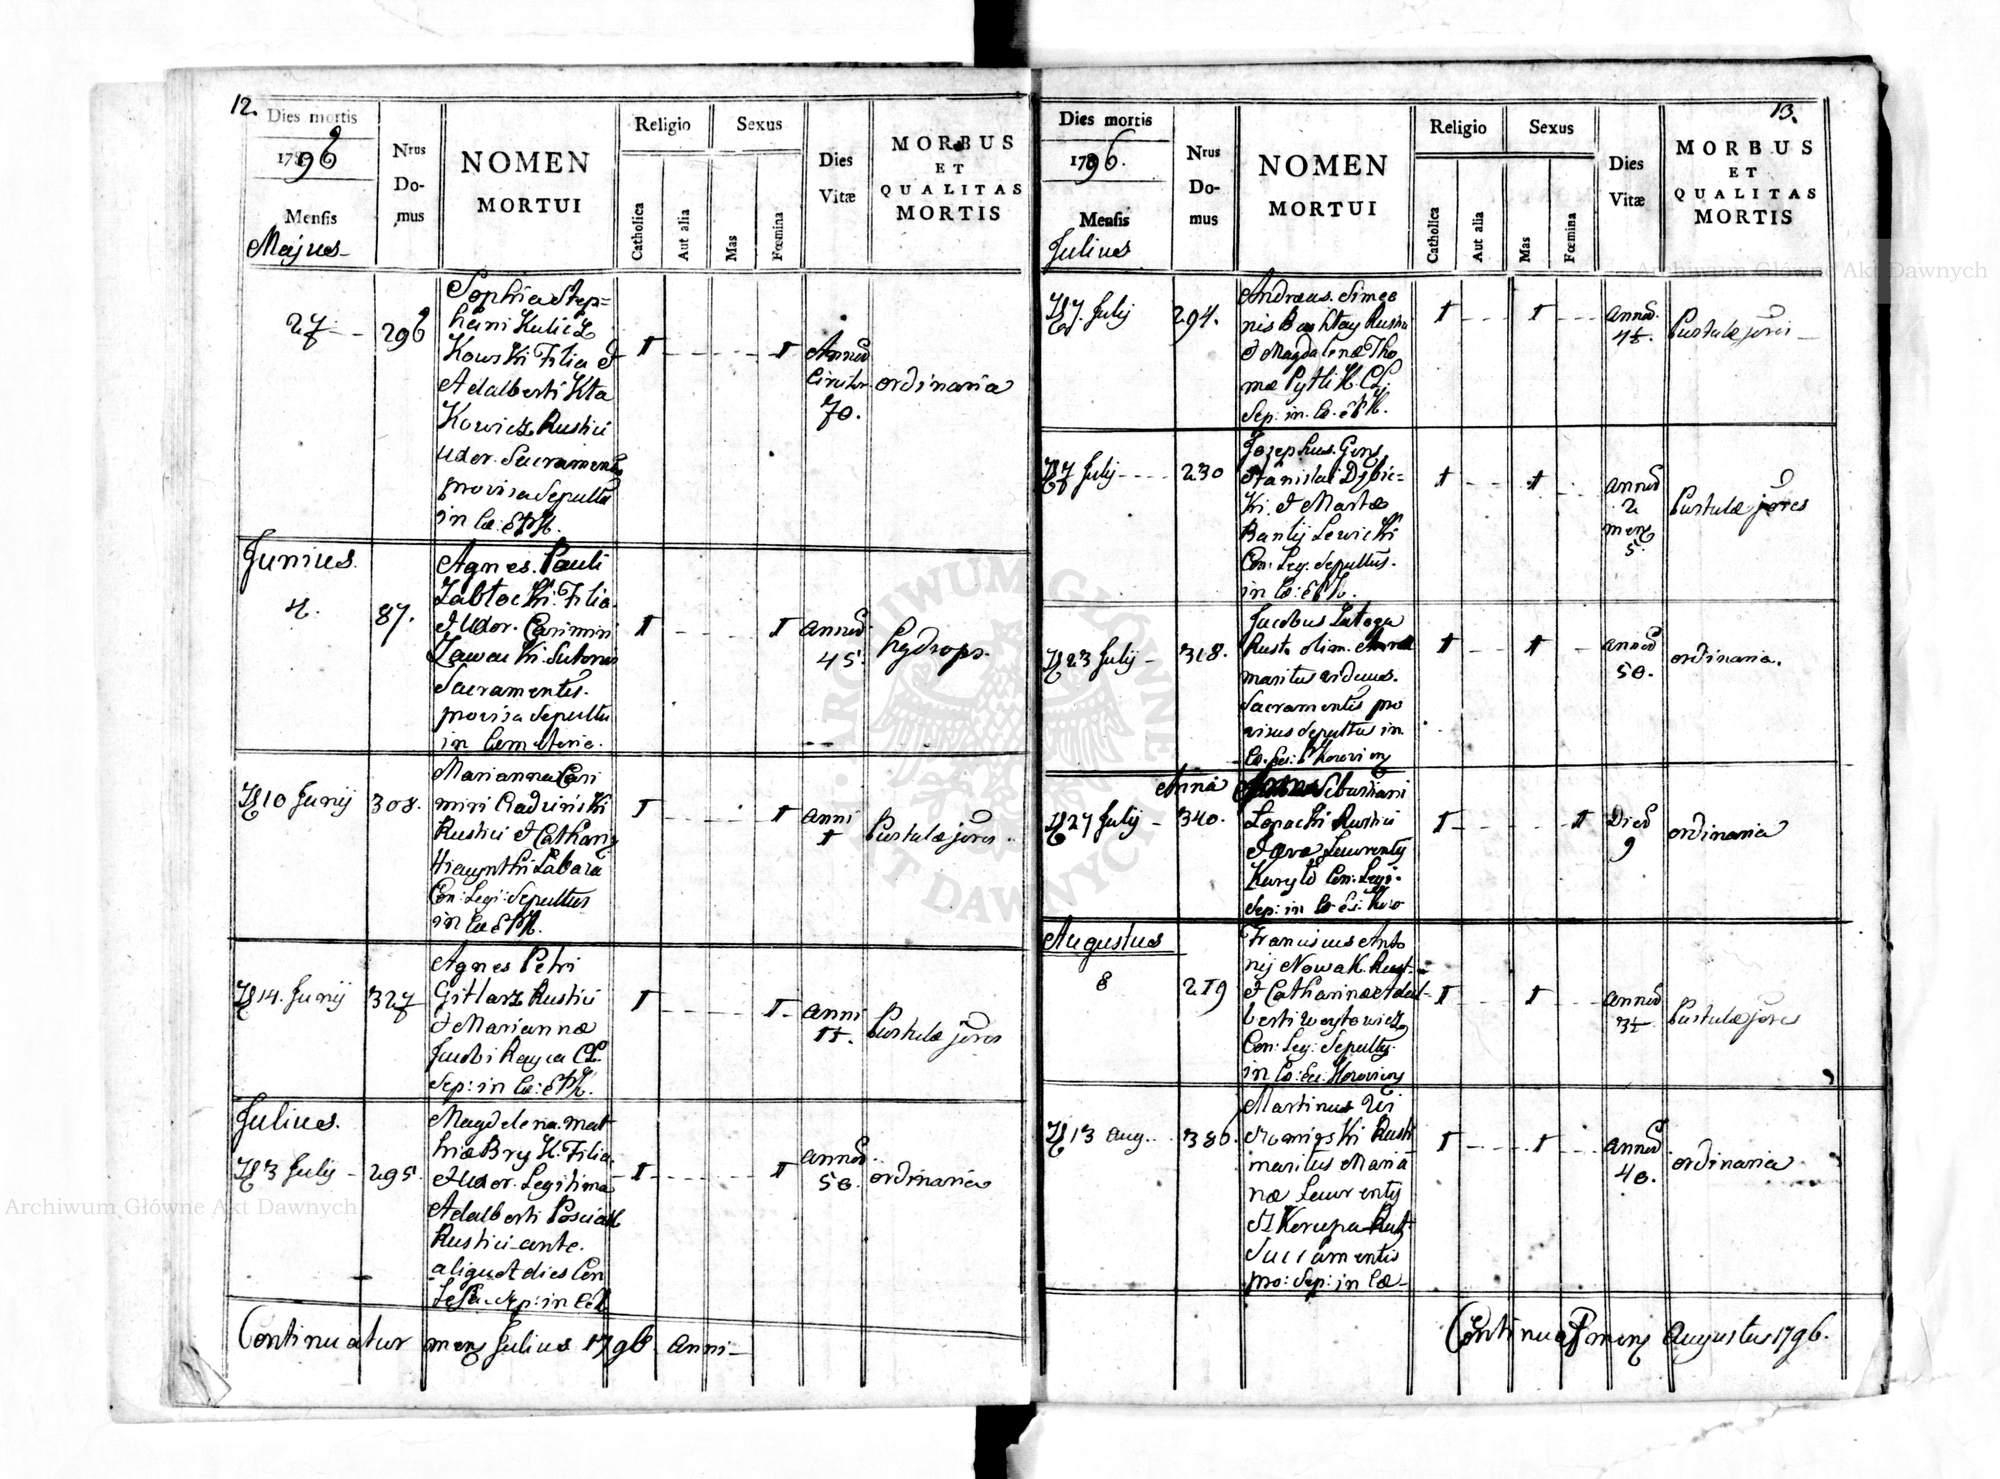 12.
Dies mortis
1796
Mensis
Majus
Nrus
Do-
mus
NOMEN
MORTUI
Religio
Catholica
Aut alia
Sexus
Mas
Fœmina
Dies
Vitæ
MORBUS
ET
QUALITAS
MORTIS
27
296
Sophia Step=
hani Kulicz
Kowski Filia &
Adalberti Kta
Kowicz Rustici
Uxor. Sacramentis
provisa Sepulta
in
Annor
Circiter
70.
ordinaria
Junius.
4.
87.
Agnes. Pauli
Zabłocki. Filia.
& Uxor. Casimiri
Zawacki. Sutoris
Sacramentis.
provisa Sepulta
in Cemeterio.
annor
45.
hydrops.
10 Junij
308.
Marianna Casi
miri Radziński
Rustici & Catharinæ
Hiacynthi Labaza
Con: Legi: Sepultus
in
anni
1
Pustulæ
14. Junij
327
Agnes Petri
Gitlarz Rustici
& Mariannæ
Jacobi Rayca CL.
Sep: in
anni
Pustulæ
Julius.
3 Julij
295.
Magdalena. mat
hiæ Bryk. Filia.
& Uxor. Legitima
Adalberti Posciak
Rustici ante.
aliquot dies Con
Sep: in
annor
50.
ordinaria
Continuatur mens Julius 1796 anni
13.
Dies mortis
1796.
Mensis
Julius
Nrus
Do-
mus
NOMEN
MORTUI
Religio
Catholica
Aut alia
Sexus
Mas
Fœmina
Dies
Vitæ
MORBUS
ET
QUALITAS
MORTIS
7. Julij
294.
Andreas. Simeo
nis Bashtay Rustici
& Magdalenæ Tho
mæ Pytlik. CL.
Sep: in.
annor.
Pustulæ
Julij
230
Josephus. Gens
Stanislai Dębic=
Ki. & Martæ
Banty Lewicki
Con: Leg: Sepultus.
in
annor
2
mens
5.
Pustulæ
23 Julij
318.
Jacobus Latoga
Rust. olim.
maritus viduus.
Sacramentis pro
visus Sepultus in
annor
50.
ordinaria.
27 Julij
340.
Anna Sebastiani
Lopacki Rustici
& Evæ Laurentij
Kuryło Con: Legi.
Sep: in
Dies
9
ordinaria
Augustus
8
219
Franciscus Anto
nij Nowak Rust.
& Catharinæ Adal-
berti Woytowicz
Con: Leg: Sepultus
in
annor
Pustulæ
13 aug.
386.
Martinus
Rusti
maritus Maria
næ Laurentij
Sacramentis
pro: Sep: in
annor
40.
ordinaria
Continuat mens Augustus 1796.
ARCHIWUM GŁÓWNE AKT DAWNYCH
Archiwum Główne Akt Dawnych
Archiwum Główne Akt Dawnych